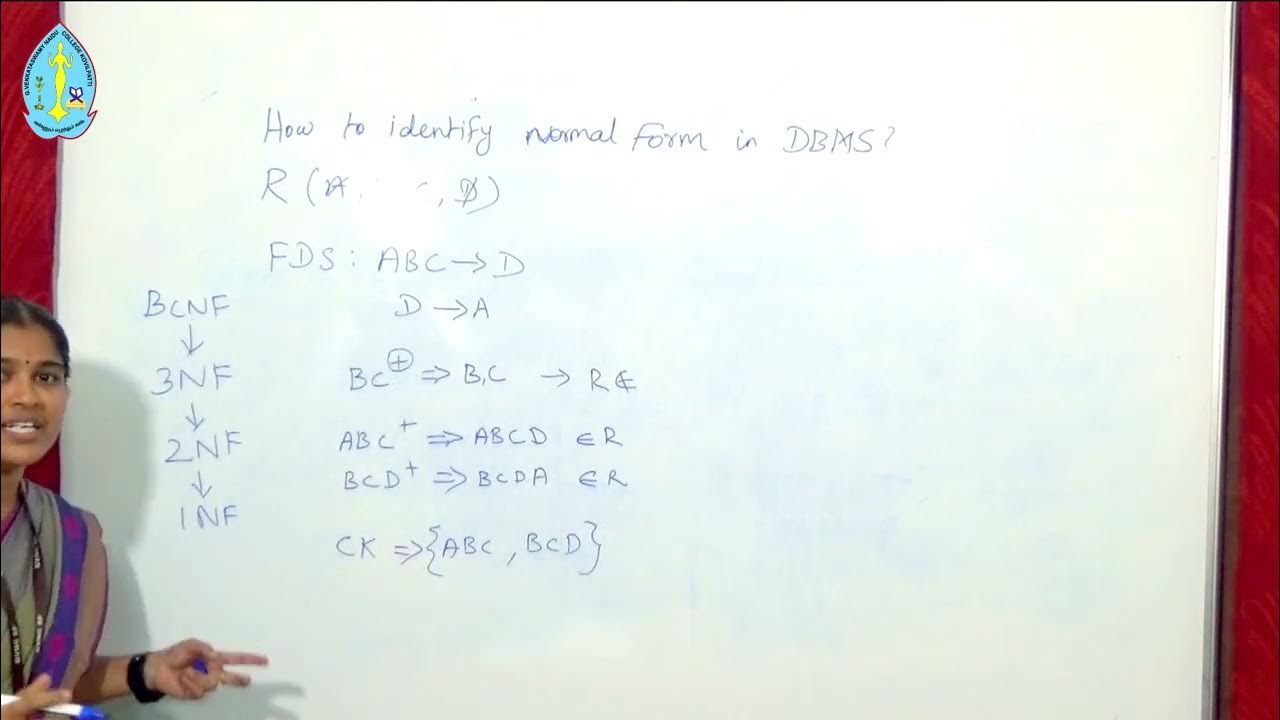 G.VENKATASWAMY NAIDU COLLEGE KOVILPATTI
How to identify normal form in DBMS?
R (A , D)
FDS : ABC → D
D → A
BCNF
↓
3NF
↓
2NF
↓
1NF
BC⊕ ⇒ B,C → R∉
ABC⁺ ⇒ ABCD ∈ R
BCD⁺ ⇒ BCDA ∈ R
CK ⇒ {ABC , BCD}